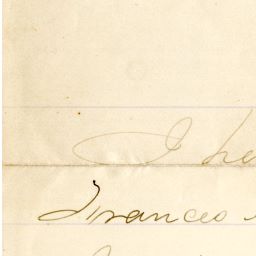 I he
Frances